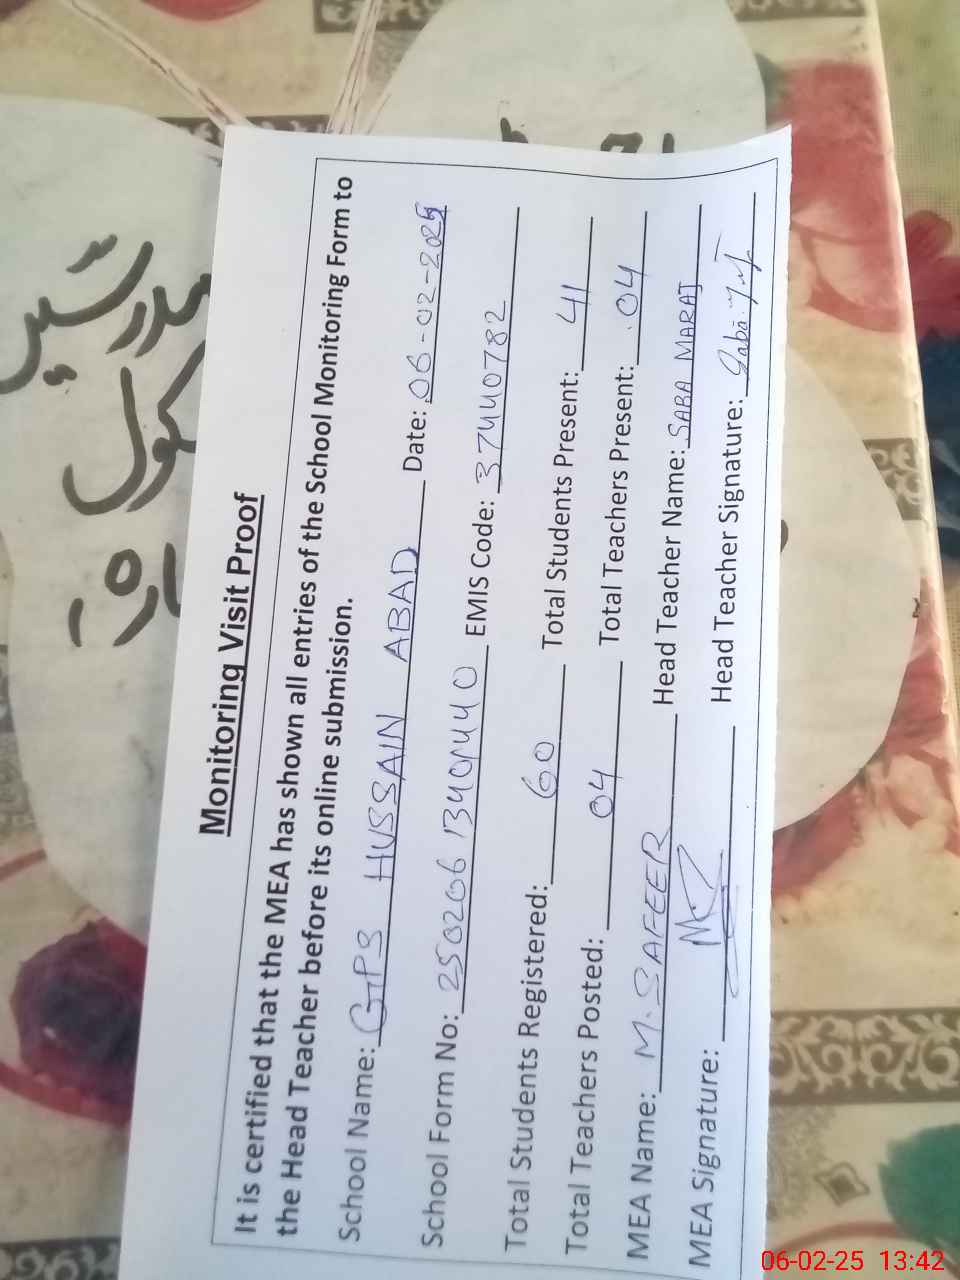 Monitoring Visit Proof
It is certified that the MEA has shown all entries of the School Monitoring Form to
the Head Teacher before its online submission.
School Name: GPS HUSSAIN ABAD Date: 06-02-2025
School Form No: EMIS Code: 37440782
Total Students Registered: 60 Total Students Present: 41
Total Teachers Posted: 04 Total Teachers Present: 04
MEA Name: M. SAFEER Head Teacher Name: SABA MARAJ
MEA Signature: Head Teacher Signature: Saba
مدرسیں
کول
06-02-25 13:42